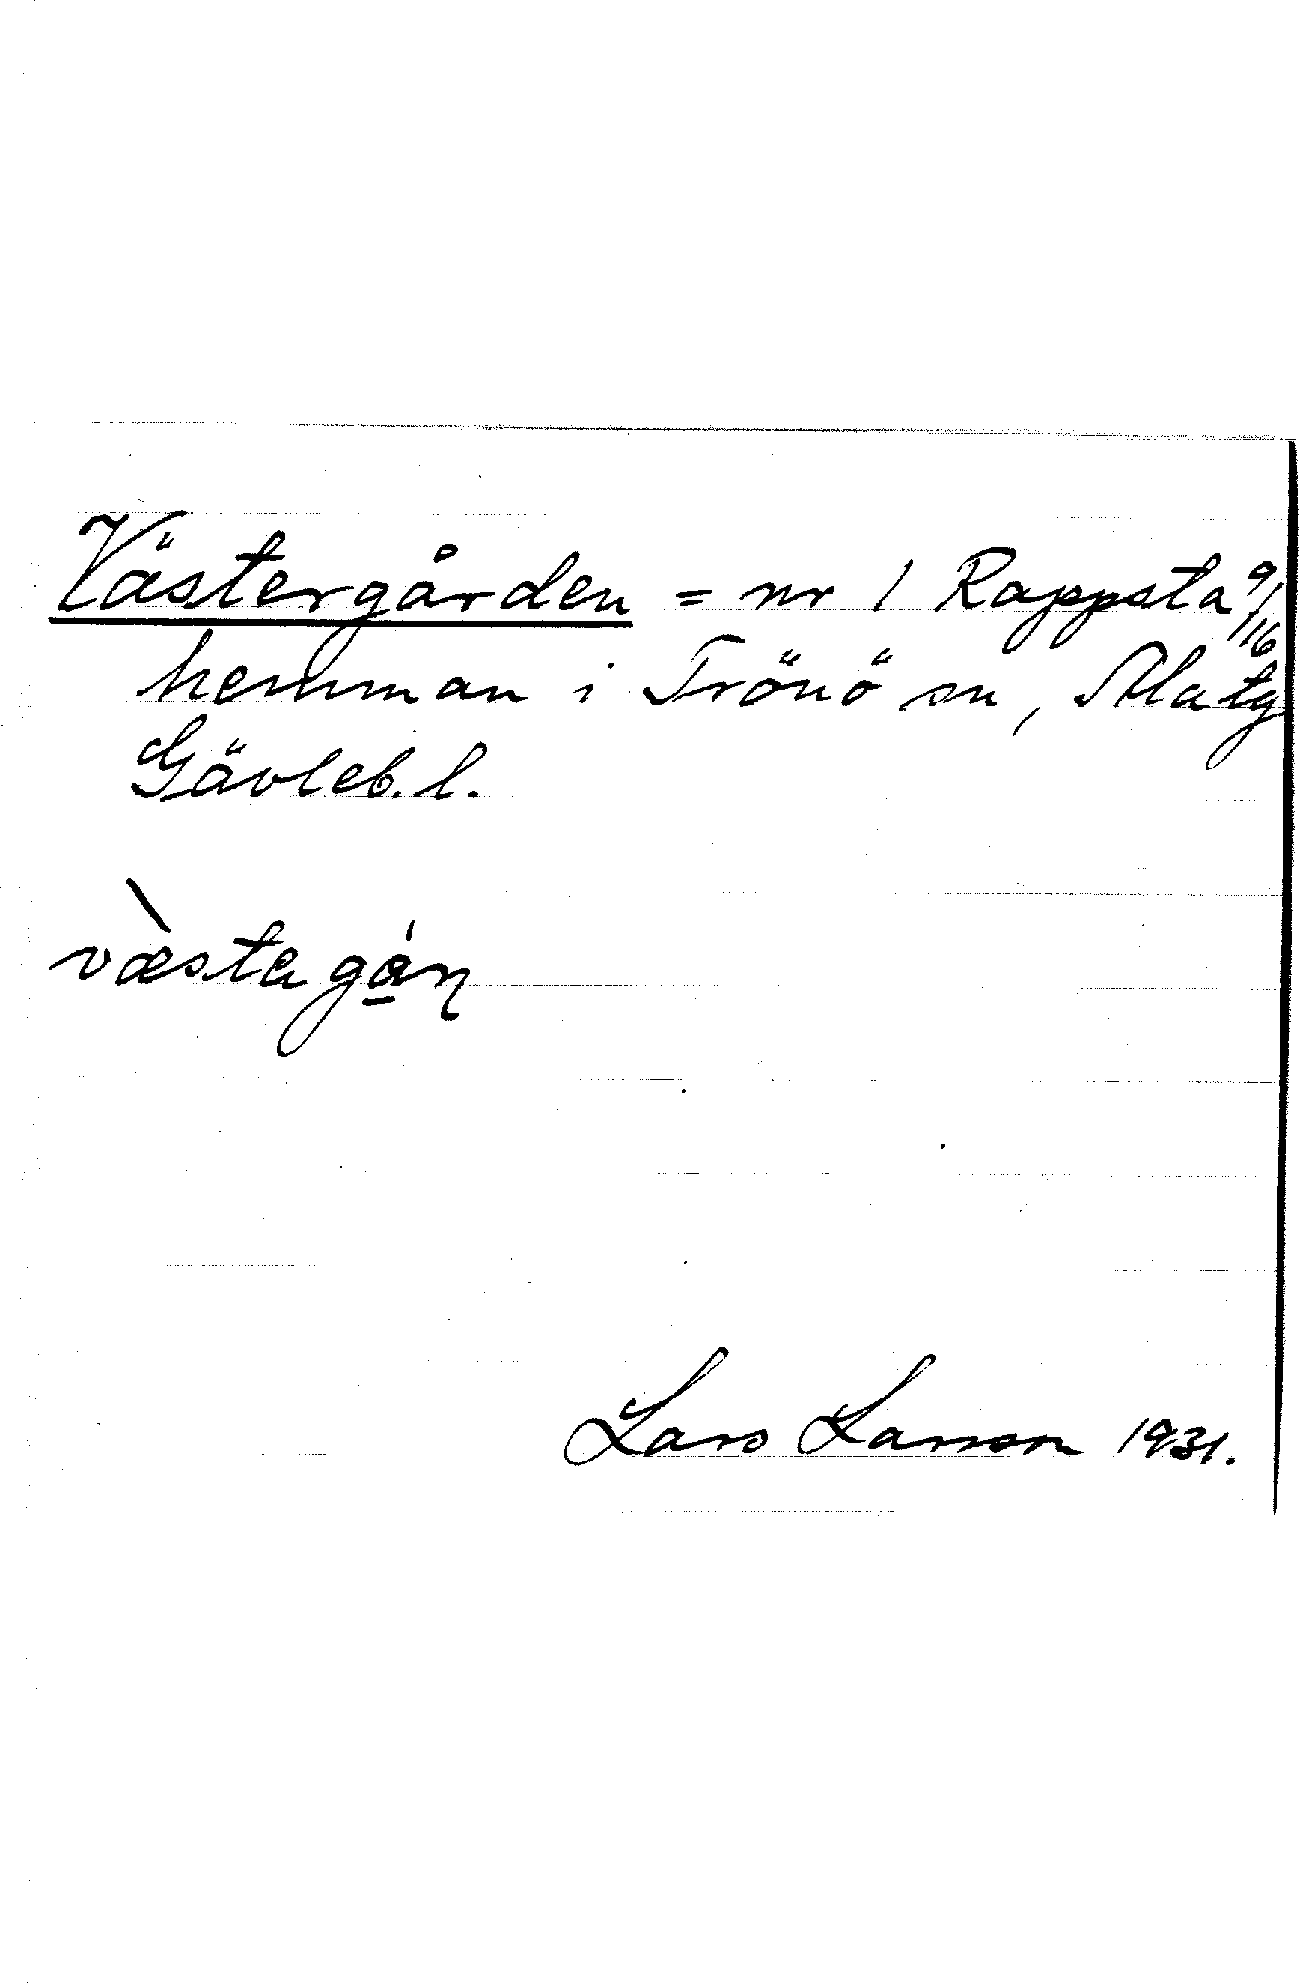 Västergården = nr 1 Rappsta 9/16
hemman i Trönö sn, Ala tg
Gävleb. l.
væ̀stagá̱ɳ
Lars Larsson 1931.